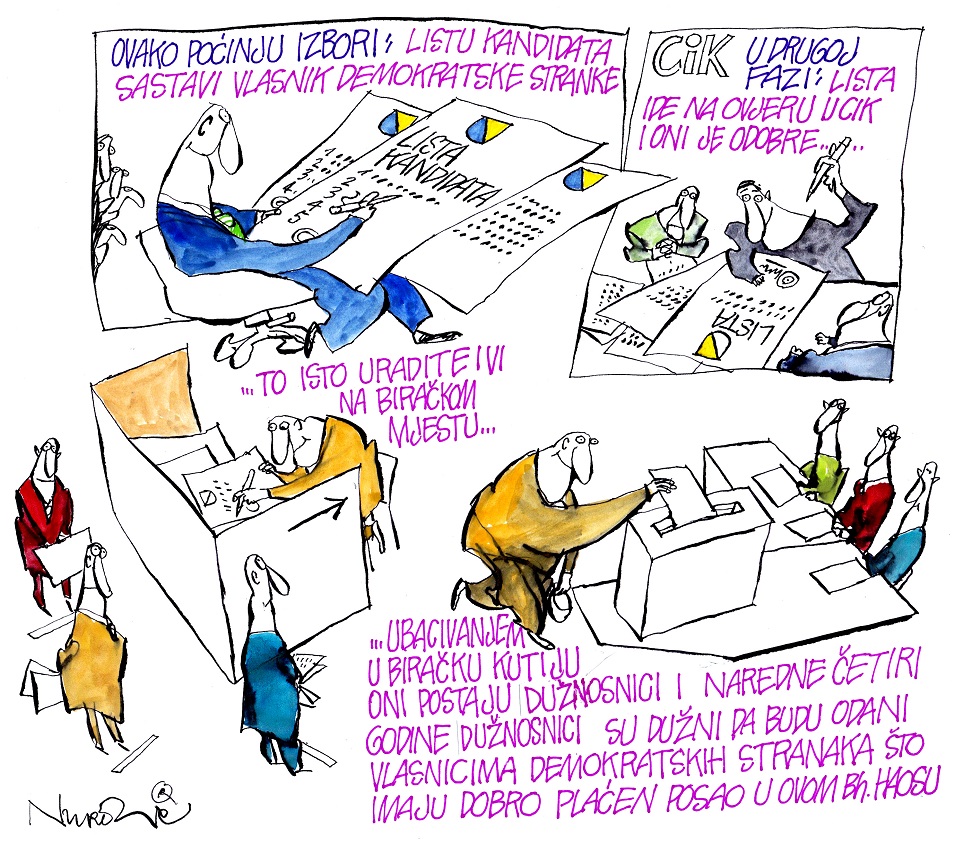 OVAKO POČINJU IZBORI: LISTU KANDIDATA
SASTAVI VLASNIK DEMOKRATSKE STRANKE
LISTA
KANDIDATA
CiK U DRUGOJ
FAZI: LISTA
IDE NA OVJERU U CIK
I ONI JE ODOBRE....
LISTA
...TO ISTO URADITE I VI
NA BIRAČKOM
MJESTU...
...UBACIVANJEM
U BIRAČKU KUTIJU
ONI POSTAJU DUŽNOSNICI I NAREDNE ČETIRI
GODINE DUŽNOSNICI SU DUŽNI DA BUDU ODANI
VLASNICIMA DEMOKRATSKIH STRANAKA ŠTO
IMAJU DOBRO PLAĆEN POSAO U OVOM Bh. HAOSU